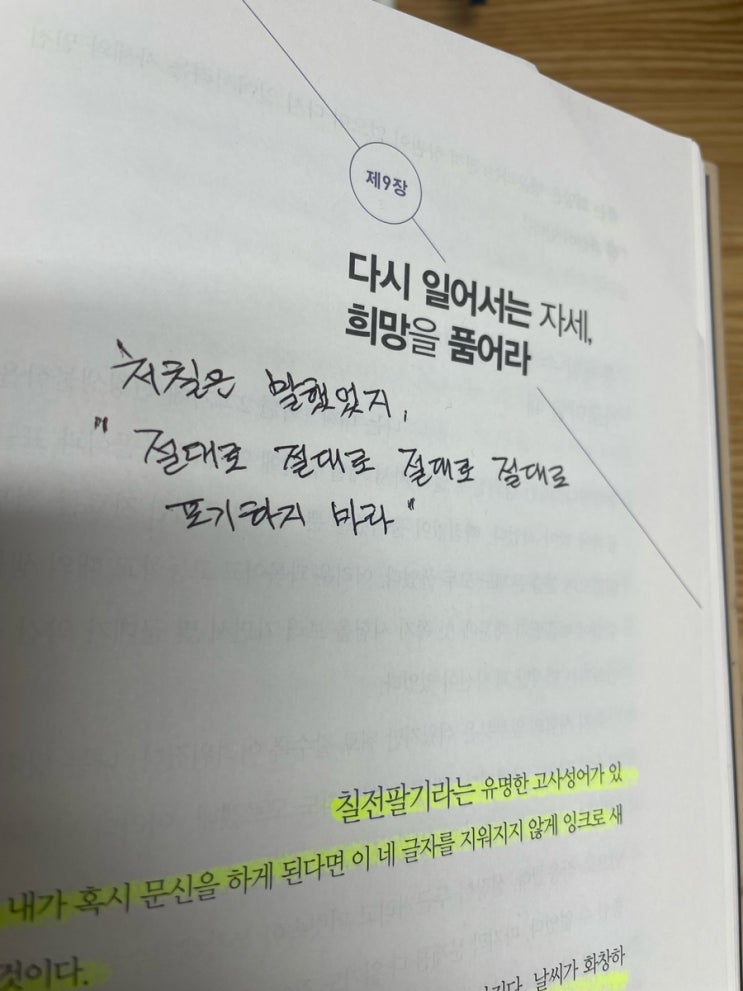 제9장
다시 일어서는 자세,
희망을 품어라
처칠은 말했었지,
" 절대로 절대로 절대로 절대로
포기하지 마라 "
칠전팔기라는 유명한 고사성어가 있
내가 혹시 문신을 하게 된다면 이 네 글자를 지워지지 않게 잉크로 새
것이다.
날씨가 화창하